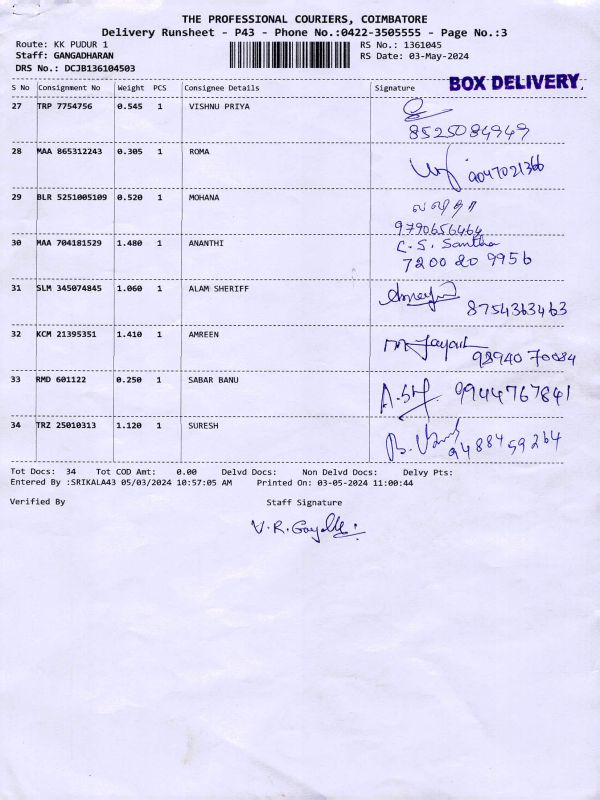 THE PROFESSIONAL COURIERS, COIMBATORE
Delivery Runsheet - P43 - Phone No.:0422-3505555 - Page No.:3
Route: KK PUDUR 1 RS No.: 1361045
Staff: GANGADHARAN RS Date: 03-May-2024
DRS No.: DCJB136104503
BOX DELIVERY.
S No Consignment No Weight PCS Consignee Details Signature
27 TRP 7754756 0.545 1 VISHNU PRIYA
8525084949
28 MAA 865312243 0.305 1 ROMA
9047021366
29 BLR 5251005109 0.520 1 MOHANA
9790656464
30 MAA 704181529 1.480 1 ANANTHI C.S. Santha
7200 20 9956
31 SLM 345074845 1.060 1 ALAM SHERIFF
8754363463
32 KCM 21395351 1.410 1 AMREEN
98940 70084
33 RMD 601122 0.250 1 SABAR BANU
9944767841
34 TRZ 25010313 1.120 1 SURESH
9488459264
Tot Docs: 34 Tot COD Amt: 0.00 Delvd Docs: Non Delvd Docs: Delvy Pts:
Entered By :SRIKALA43 05/03/2024 10:57:05 AM Printed On: 03-05-2024 11:00:44
Verified By Staff Signature